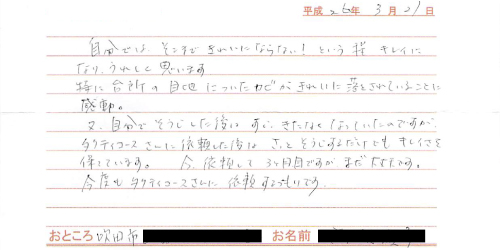 平成 26年 3月 21日
自分では そこまで きれいにならない! という 程 キレイに
なり、うれしく 思います
特に 台所の 目地 についた カビが きれいに 落とされていることに
感動。
又、自分で そうじした後は すぐ、きたなく なっていたのですが、
タクティコース さんに 依頼した後は さっと そうじするだけでも キレイさを
保っています。 今、依頼して 3ヶ月目ですが まだ 大丈夫です。
今度も タクティコースさんに 依頼するつもりです。
おところ 吹田市 お名前